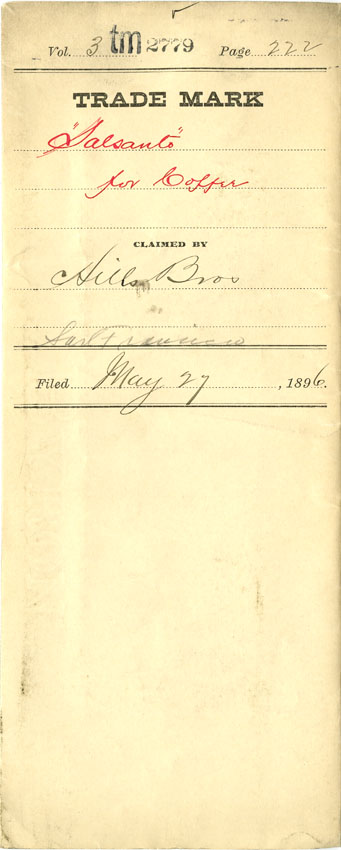 Vol. 3 tm 2779 Page 222
TRADE MARK
"Salsanto"
for Coffee
CLAIMED BY
Hills Bros
San Francisco
Filed May 27, 1896.